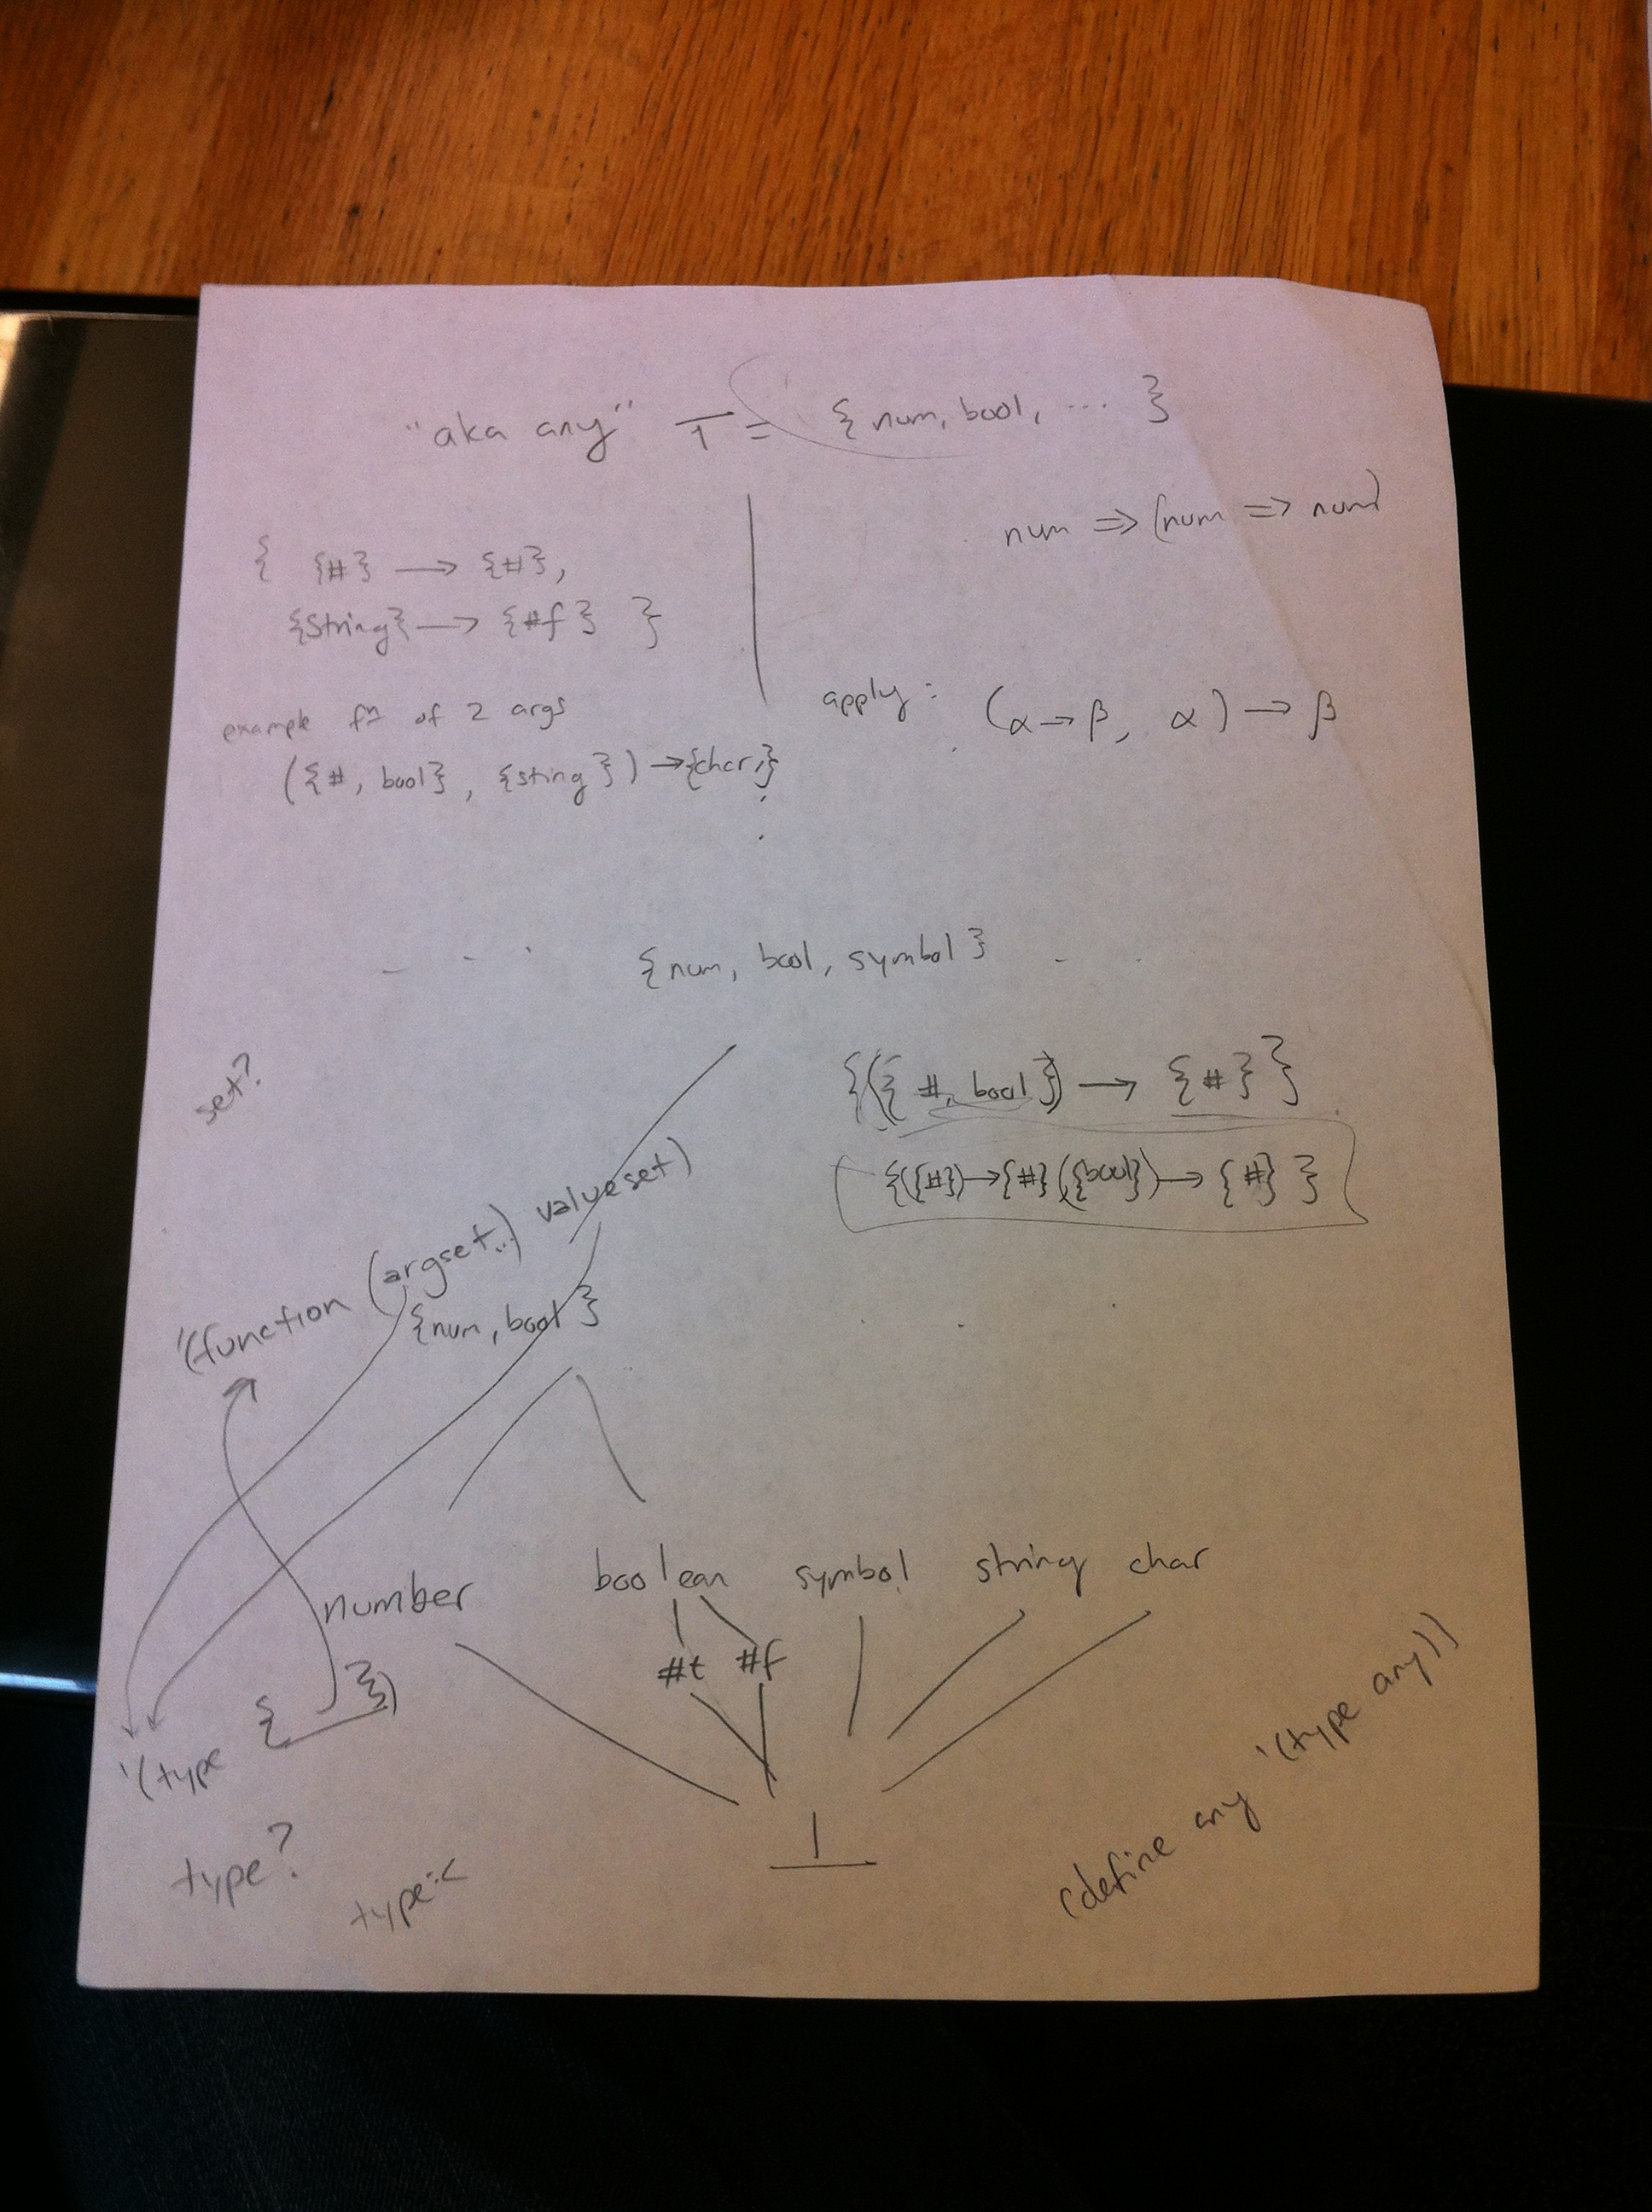 "aka any" ⊤ = { num, bool, ... }
num => (num => num)
{ {#} → {#},
{String} → {#f} }
apply: (α → β, α) → β
example fn of 2 args
({#, bool}, {sting}) → {char}
{num, bool, symbol}
set?
{({#, bool}) → {#}}
{({#}) → {#} ({bool}) → {#} }
'(function (argset...) valueset)
{num, bool}
number boolean symbol string char
#t #f
'(type { })
⊥
type?
type:<
(define any '(type any))